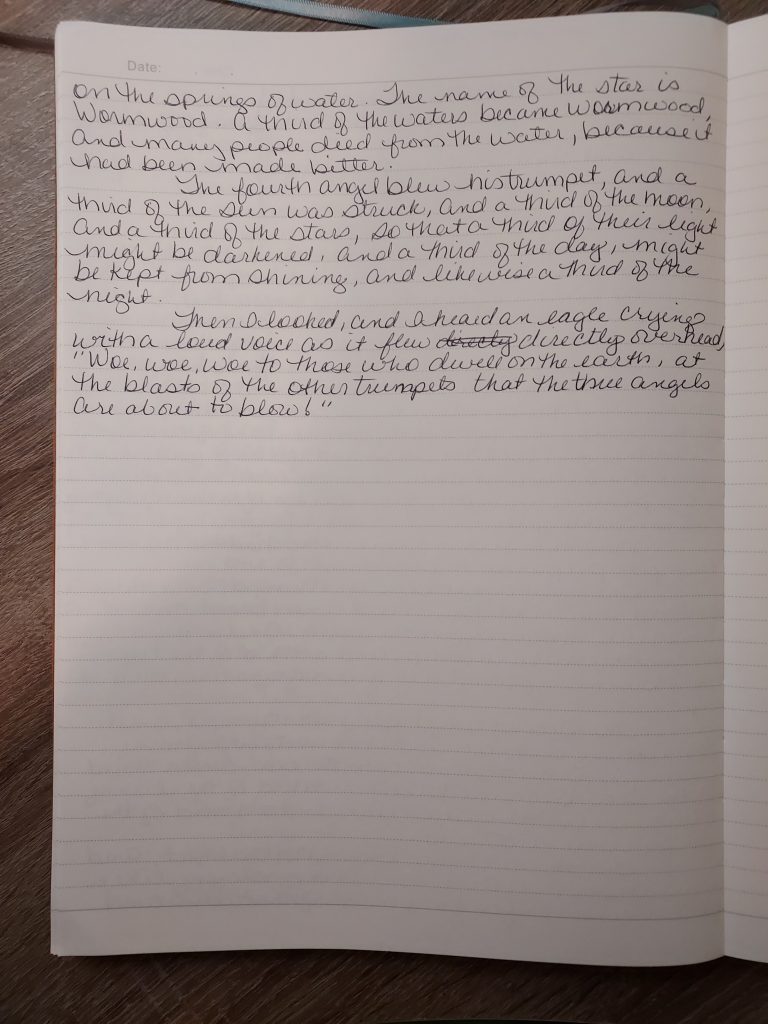 Date:
on the springs of water. The name of the star is
Wormwood. A third of the waters became wormwood,
and many people died from the water, because it
had been made bitter.
The fourth angel blew his trumpet, and a
third of the sun was struck, and a third of the moon,
and a third of the stars, so that a third of their light
might be darkened, and a third of the day, might
be kept from shining, and likewise a third of the
night.
Then I looked, and I heard an eagle crying
with a loud voice as it flew directly directly overhead,
"Woe, woe, woe to those who dwell on the earth, at
the blasts of the other trumpets that the three angels
are about to blow!"